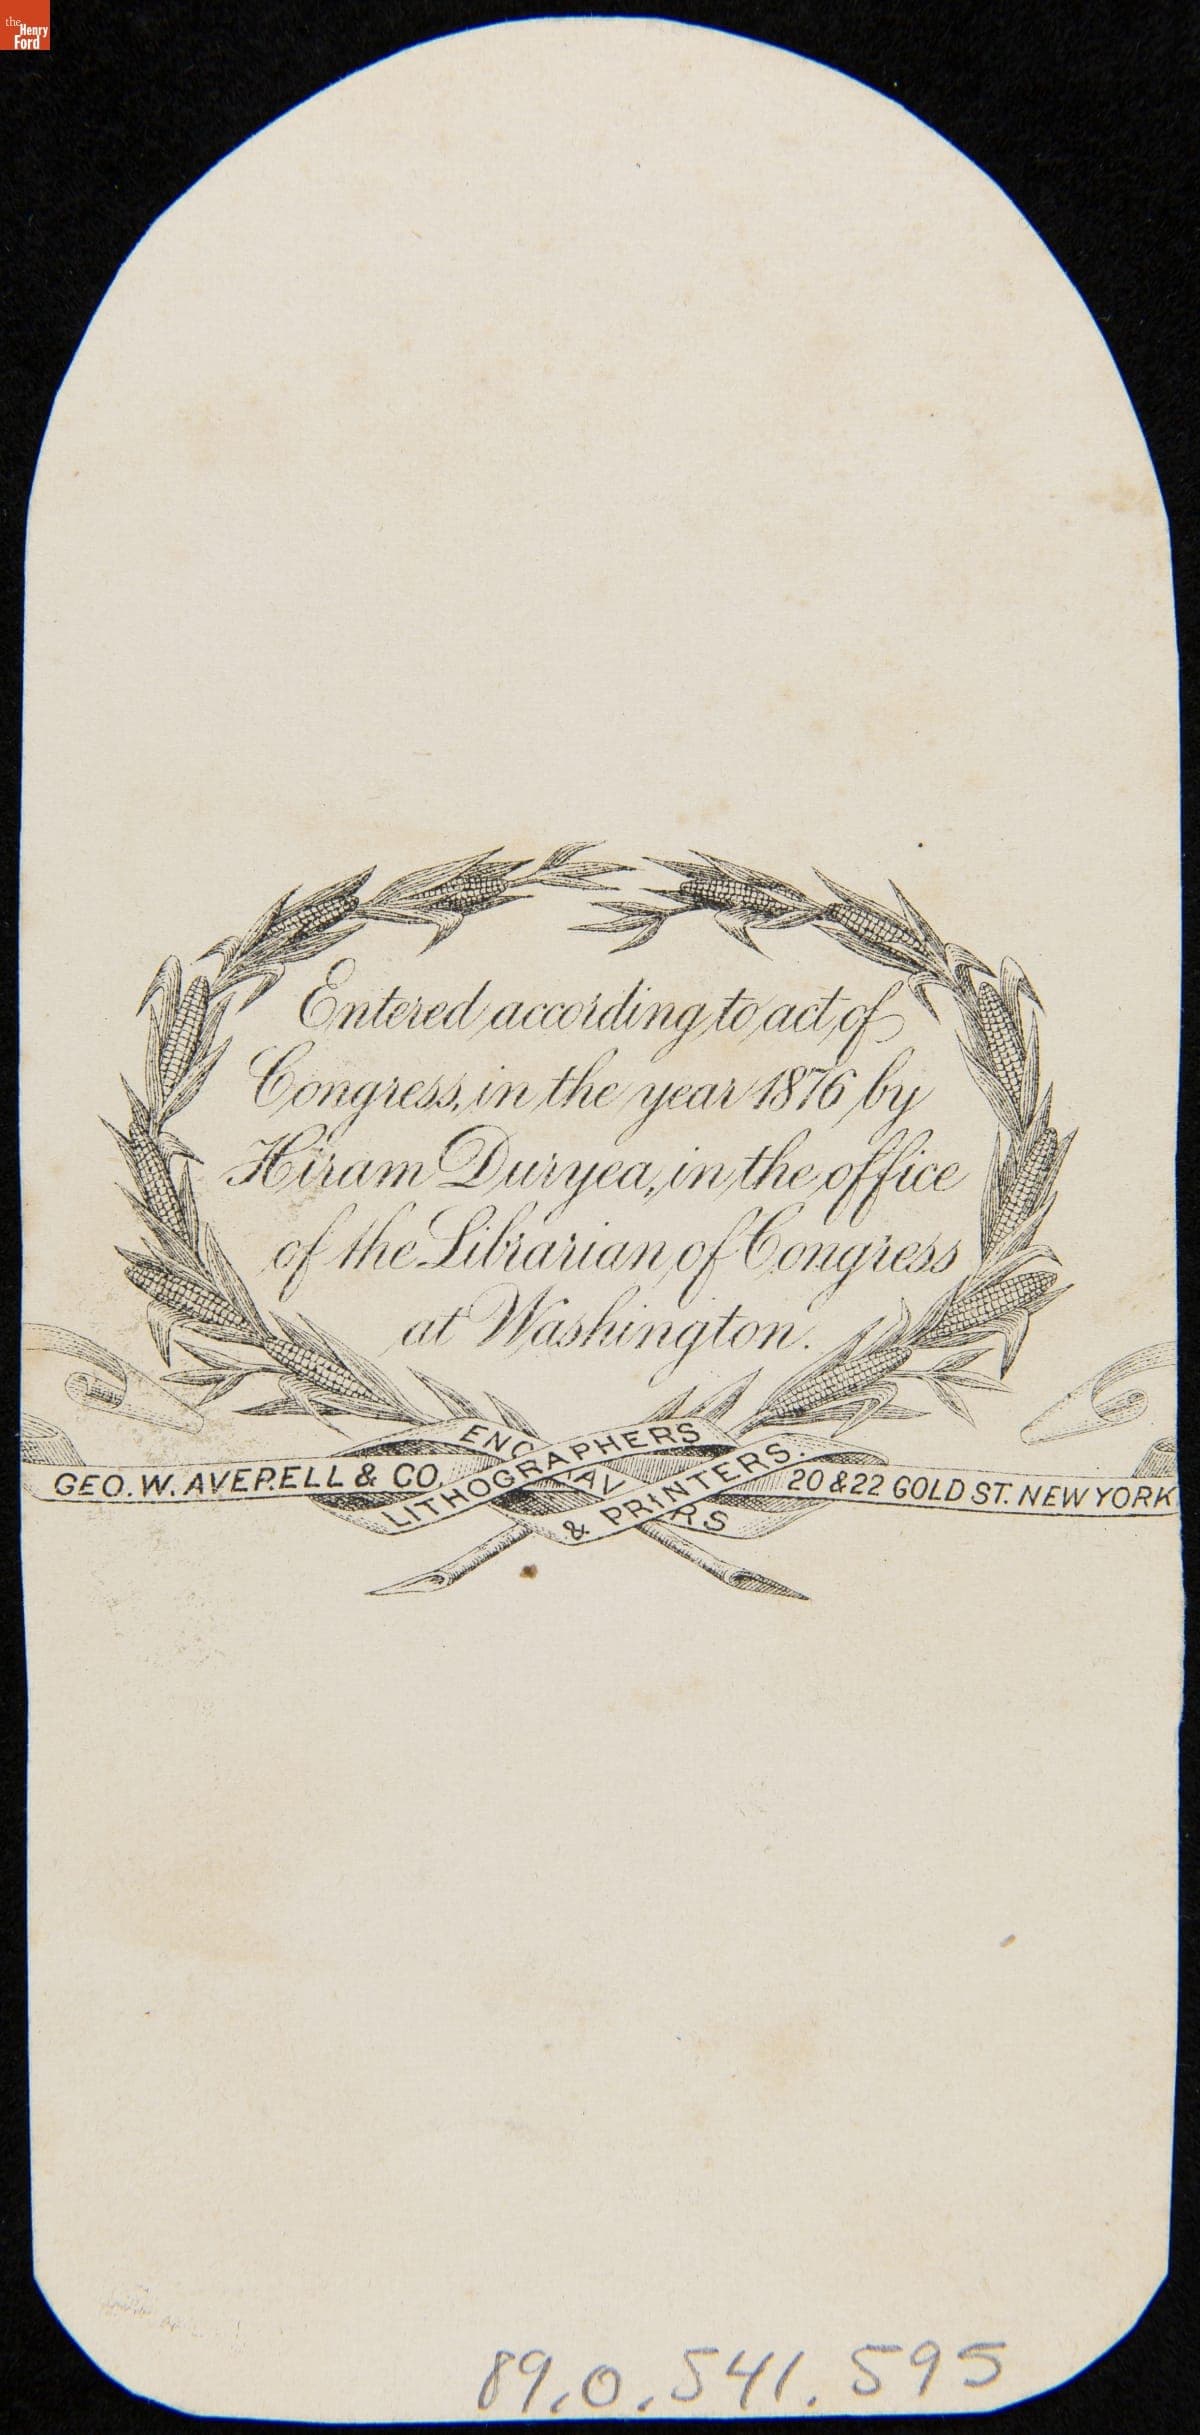 the
Henry
Ford
Entered according to act of
Congress, in the year 1876 by
Hiram Duryea, in the office
of the Librarian of Congress
at Washington.
GEO. W. AVERELL & CO.
LITHOGRAPHERS
& PRINTERS.
20 & 22 GOLD ST. NEW YORK
89.0.541.595